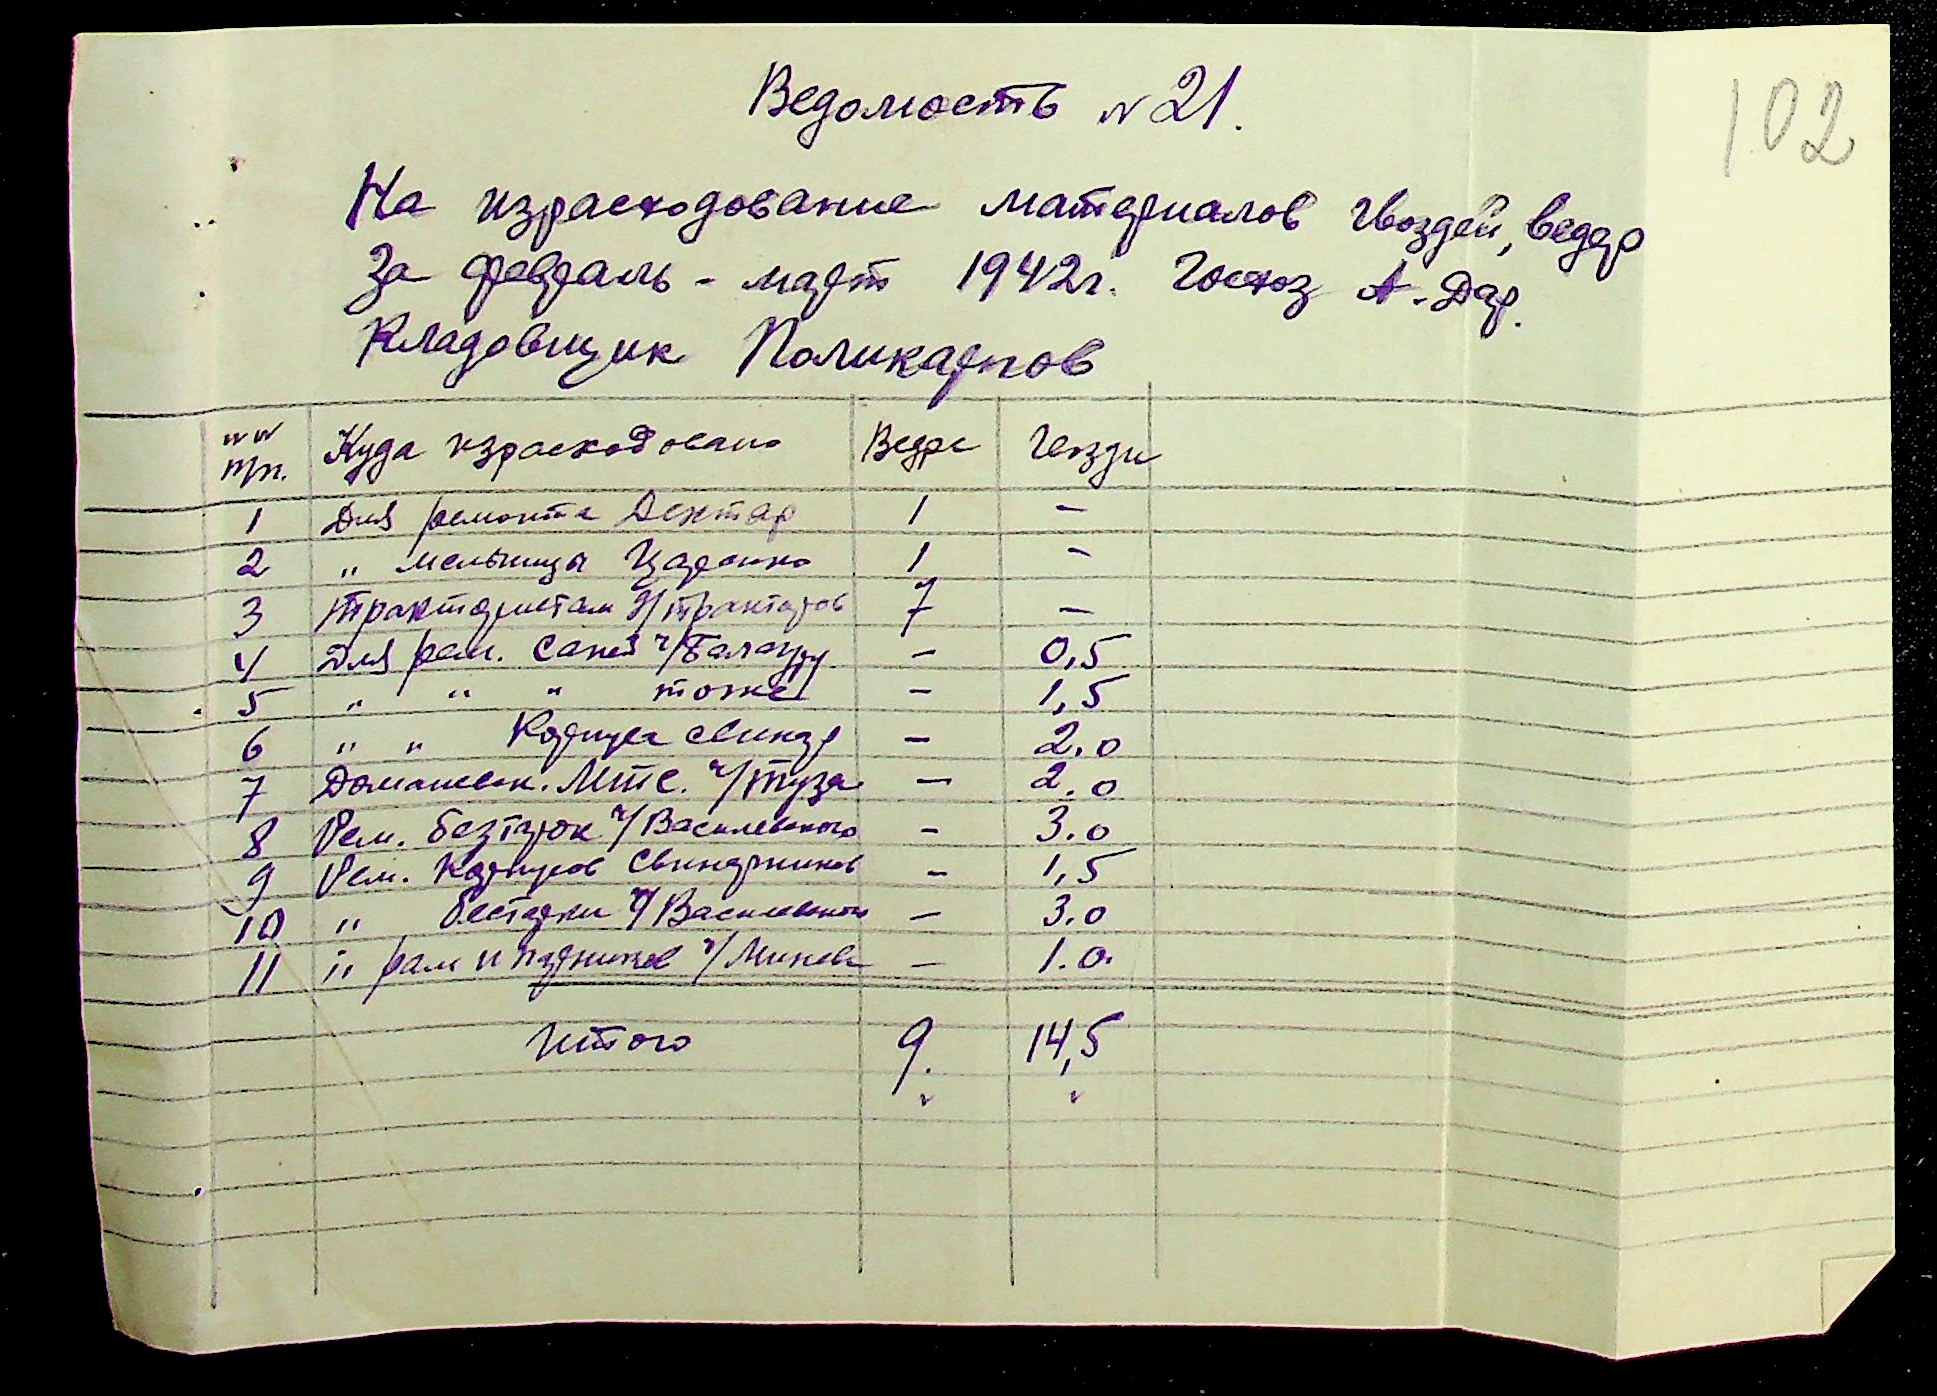 102
Ведомость N 21.
На израсходование материалов гвоздей, ведер
За февраль - март 1942г. Госхоз А. Дар.
Кладовщик Поликарпов
NN п/п. Куда израсходовано Ведра Гвозди
1 Для ремонта 1 —
2 " мельницы Царенко 1 —
3 Трактористам д/тракторов 7 —
4 Для рем. Саней ч/Балагуру — 0,5
5 " " " тоже — 1,5
6 " " Корпуса свинар — 2.0
7 Домашевск. Мтс. ч/Туза — 2.0
8 Рем. безтарок ч/Василевского — 3.0
9 Рем. Корпусов Свинарников — 1,5
10 " бестарки ч/Василевского — 3.0
11 " рам и парников ч/ — 1.0.
Итого 9. 14,5